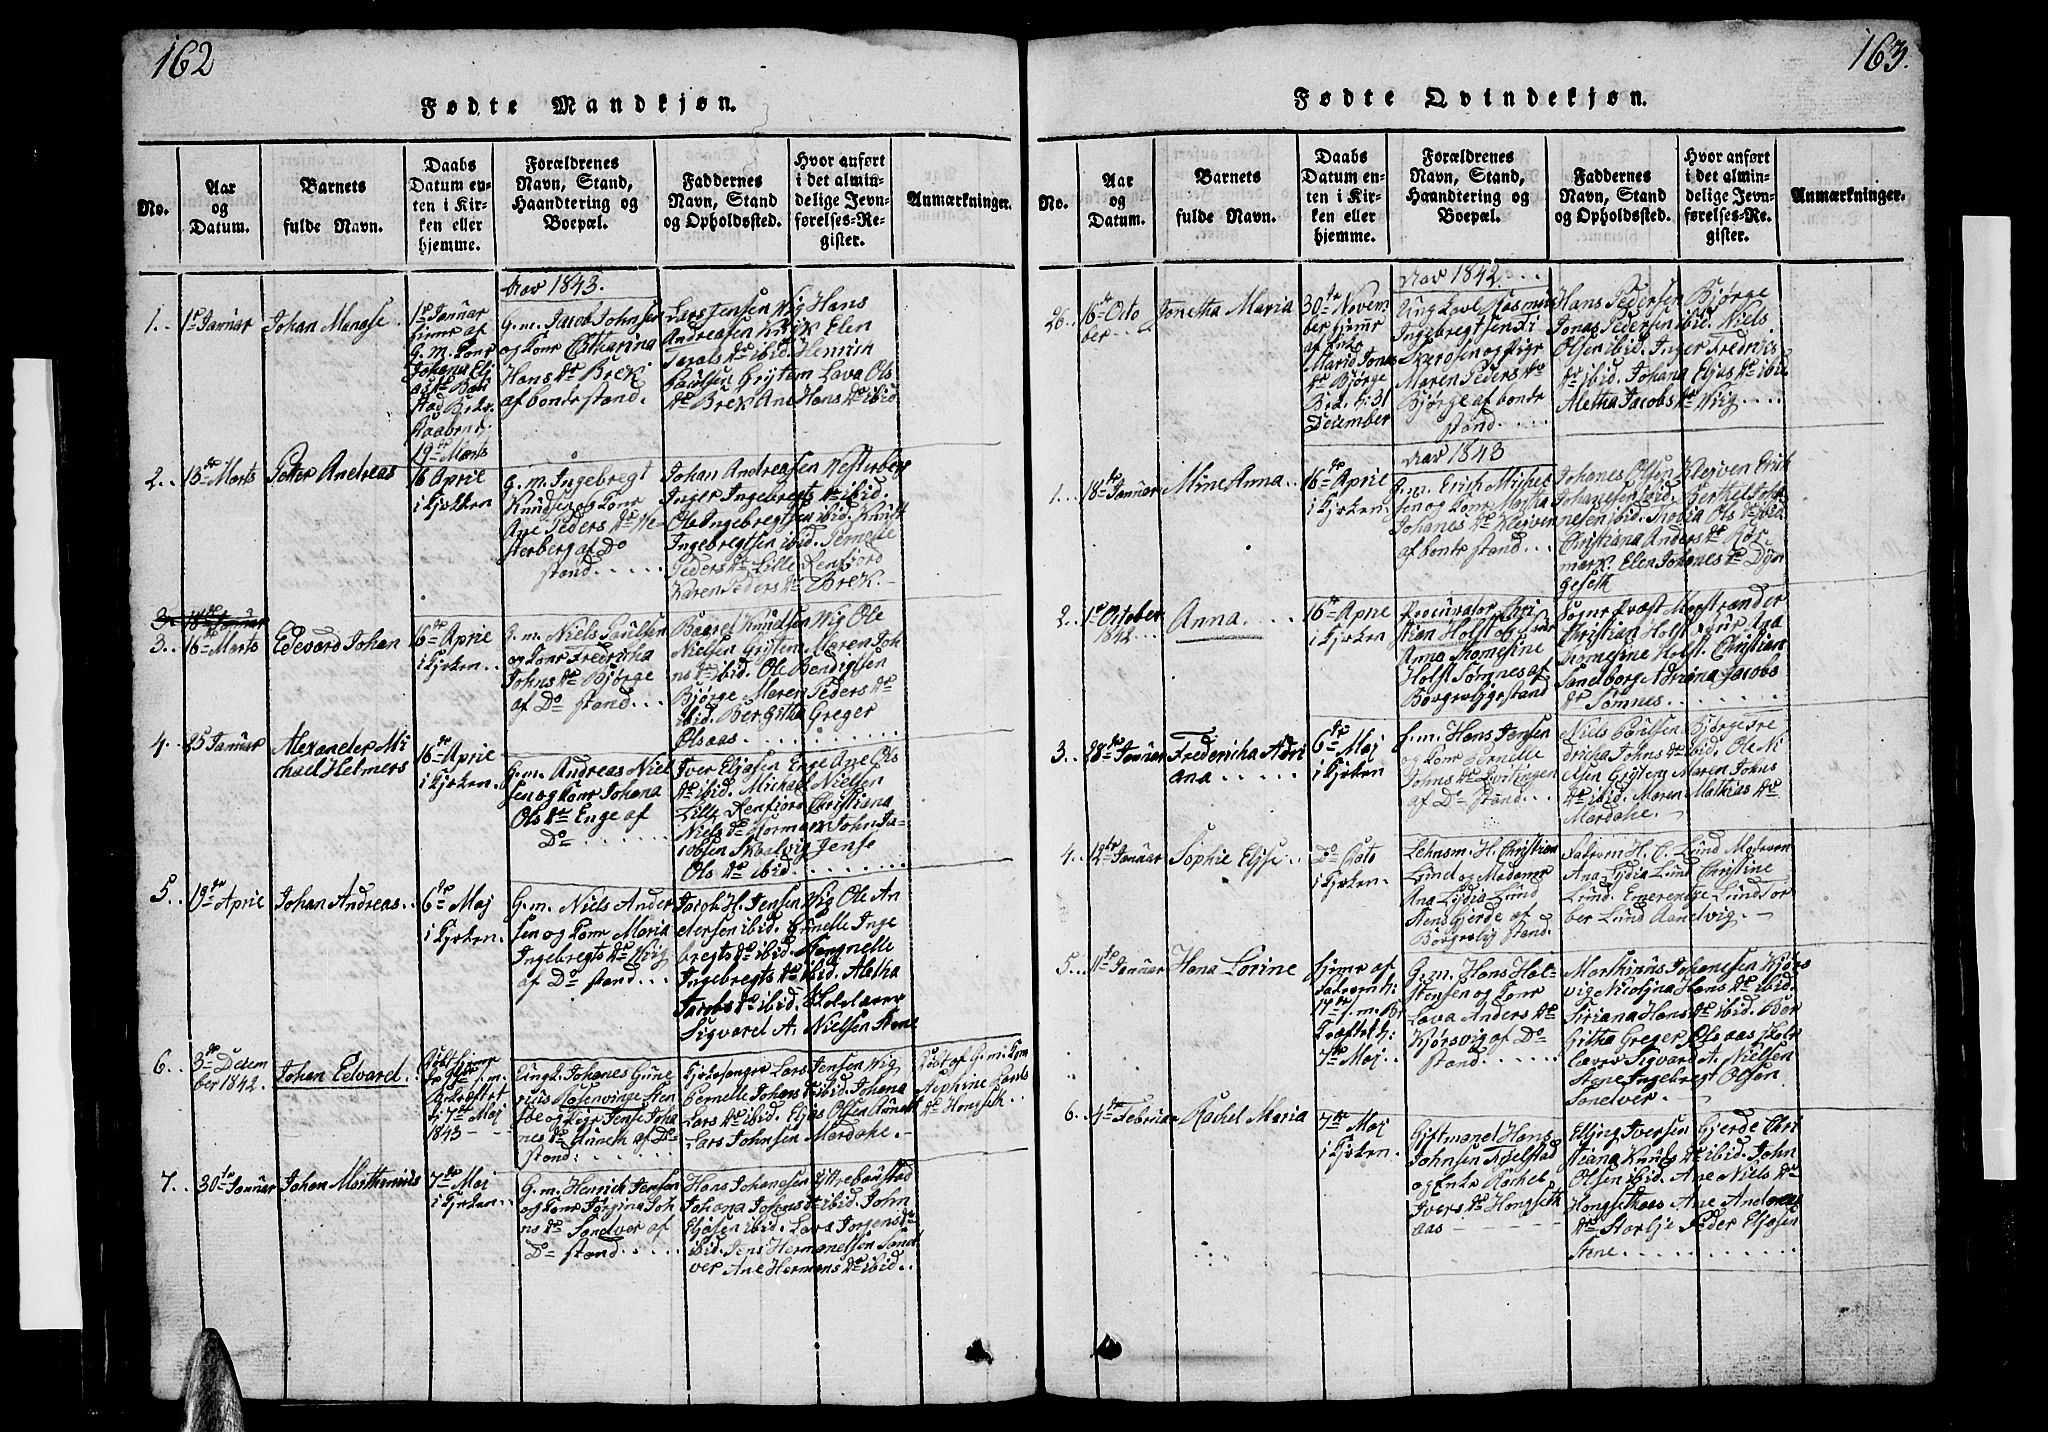 162
Fødte Mandkjøn.
No.
Aar
og
Datum.
Barnets
fulde Navn.
Daabs
Datum en-
ten i Kir-
ken eller
hjemme.
Forældrenes
Navn, Stand,
Haandtering og
Boepæl.
Faddernes
Navn, Stand
og Opholdssted.
Hvor anført
i det almin-
delige Jevn-
førelses-Re-
gister.
Anmærkninger.
Aar 1843.
1..
1de Januar
Johan Manase
1de Januar
hjemr af
G. m. Konr
Johana Eli
asdr Bau
stad Bekr.
19de Marts
G. m. Jacob Johnsen
og Konr Catharina
Hansdr Brek
af bonde stand.
Lars Jensen Wig Hans
Andreasen Elen
ibid. Henrich
Paulsen Grytem Lava Ols
dr Brek Ane Hansdr ibid
2..
13de Marts
Petter Andreas
16 April
i Kjrken
G. m. Ingebregt
Knudsen og Konr
Ane Pedersdr We-
sterberg af Do
stand.....
Johan Andreasen Westerberg
Inger Ingebregtsdr ibid.
Ole Ingebregtsen ibid. Knut
Ingebregtsen ibid. Pernelle
Pedersdr Lille Renfiord
Karen Pedersdr Brek.-
3. 18de Januar
3..
16de Marts
Edevard Johan
16de Aprie
i Kjrken..
G. m. Niels Paulsen
og Konr Fredricha
Johnsdr Bjørge
af Do stand...
Baarel Knudsen Wig Ole
Nielsen Grytem Maren Joh
nsdr ibid. Ole Bendigtsen
Bjørge Maren Pedersdr
ibid. Bergitha Greger
Olsaas...........
4..
25 Januar
Alexander Mi
chael Helmers
16de Aprie
i Kjrken.
G. m. Andreas Niel
sen og Konr Johana
Olsdr Enge af
Do......
Iver Eliasen Enge Ane Ols
dr ibid. Michael Nielsen
Lille Renfiord Christiana
Nielsdr Hormark John Ja-
cobsen Skaalvig Jense
Olsdr ibid.......
5..
19de Aprie
Johan Andreas..
6te Maj
i Kjrken.
G. m. Niels Ander
sen og Konr Maria
Ingebregtsdr Wiig
af Do stand...
Jacob H. Jensen Wig Ole An
dersen ibid. Gunelle Inge
bregtsdr ibid.
Ingebregtsdr ibid. Aletha
Jacobsdr ibid. Skolelærer
Sigvard A. Nielsen Stene
6..
3de Decem
ber 1842.
Johan Edvard.
Døbt hjemr
f. m.
Bekræftet
d: 7de Maj
1843 --
Ungk. Johanes Gune
rius Rosenvinge Sten
søe og Pige Jense Joha
nesdr Anneth af Do
stand:......
Kirkesanger Lars Jensen Wig
Pernelle Johansdr ibid. Johana
Larsdr ibid. Elias Olsen
Lars Johnsen Mardahe.-
Døbt af G. m: Kone
Stephine Lars
dr Hongseth..
7..
30te Januar
Johan Marthinius
7de Maj
i Kjrken..
G. m. Henrich Jensen
og Konr Jørgina Joh
nsdr Sandver af
Do stand......
Hans Johanesen Yttrebaustad
Johana Johansdr ibid. John
Eliasen ibid. Lava Jørgensdr
ibid. Jens Hermanelsen Sand
ver Ane Hermansdr ibid..
163.
Fødte Qvindekjøn.
No.
Aar
og
Datum.
Barnets
fulde Navn.
Daabs
Datum en-
ten i Kir-
ken eller
hjemme.
Forældrenes
Navn, Stand,
Haandtering og
Boepæl.
Faddernes
Navn, Stand
og Opholdssted.
Hvor anført
i det almin-
delige Jevn-
førelses-Re-
gister.
Anmærkninger.
Aar 1842...
26..
16de Octo
ber...
Jonetha Maria
30te Novem
ber hjemr
af Enke
Marid Jonas
dr Bjørge
31
December
Ungkarl Rasmus
Ingebregtsen
og Pige
Maren Pedersdr
Bjørge af bonde
stand.....
Hans Pedersen Bjørge
Jonas Pedersen ibid. Niels
Olsen ibid. Inger Fredrics
dr ibid. Johana Eliasdr ibid
Aletha Jacobsdr Wiig....
Aar 1843
1...
18de Januar
Mine Anna..
16de Aprie
i Kjrken.
G. m. Erich Michel
sen og Konr Martha
Johanesdr Kleiven
af bonde stand...
Johanes Olsen Kleiven Erik
Johanesen ibid. Berthel Joha
nesen ibid. Olsdr ibid
Christiana Andersdr Hor
mark. Elen Johanesdr
2..
1de October
1842...
Anna....
16de Aprie
i Kjrken
Procurator Chri
stian Holst og
Anna Thomesine
Holst Sømnes af
Borgerlige stand
Sognr Præst Maystrander
Christian Holst. Ana
Thomesine Holst. Christian
Sandborg Adriana Jacobs
dr Sømnes........
3..
28de Januar
Fredericha Adri
ana......
6te Maj
i Kjrken
G. m. Hans Jensen
og Konr Pernelle
Johnsdr
af Do stand...
Niels Paulsen Bjørge Fre
dricha Johnsdr ibid. Ole Ni
elsen Grytem Maren Johns
dr ibid. Maren Mathiasdr
Mardahe.-
4..
12te Januar
Sophie Elise..
Do Dato
i Kjrken.
Lehnsm. H. Christian
Lund og Madame
Ana Lydia Lund
Stensgjerde af
Borgerlig stand.
Faderen H. C. Lund Moderen
Ana Lydia Lund Christine
Lund. Emerentze Lund
ber Lund Aandvig.-
5...
11te Januar
Hana Lorine
hjemr af
Faderen d:
17de f. m. Be
kræftet d:
7de Maj.
G. m. Hans Hal-
stensen og Konr
Lava Andersdr
Kjørsvig af Do
stand......
Marthinus Johanesen Kjørs
vig Nicolina Hansdr ibid.
Siriana Hansdr ibid. Ber
githa Greger Olsaas Skole
lærer Sigvard A. Nielsen
Stene Ingebregt Olsen
Sandver.-
6..
4de Februar
Rachel Maria
7de Maj
i Kjrken.
Giftmand Hans
Johnsen Kjelstad
og Enke Rachel
Iversdr Hongseth
aas- - - - - -
Elling Iversen Gjerde Chri
stiana Knudsdr ibid. John
Olsen ibid. Ane Nielsdr
Hongsethaas Ane Andreas
dr Storlje Peder Eliasen
Stene...........